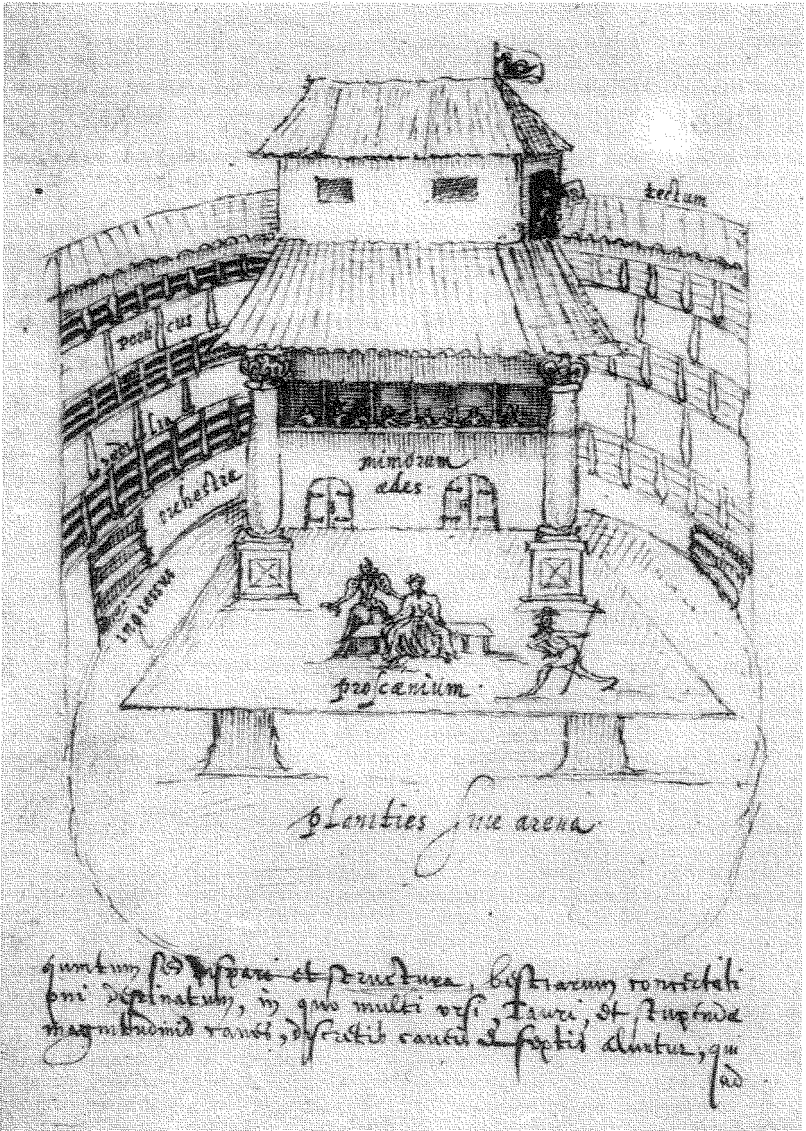 tectum
porticus
sedilia
orchestra
ingressus
mimorum
ædes.
proscænium.
planities siue arena.
quintum sed dispari et structura, bestiarum concertati
oni destinatum, in quo multi vrsi, Tauri, et stupendæ
magnitudinis canes, discretis caueis et septis aluntur, qui
ad